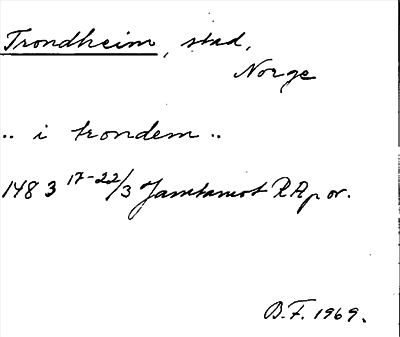 Trondheim, stad,
Norge
.. i trondem ..
1483 17-22/3 Jamtamot RAp or.
D.F. 1969.